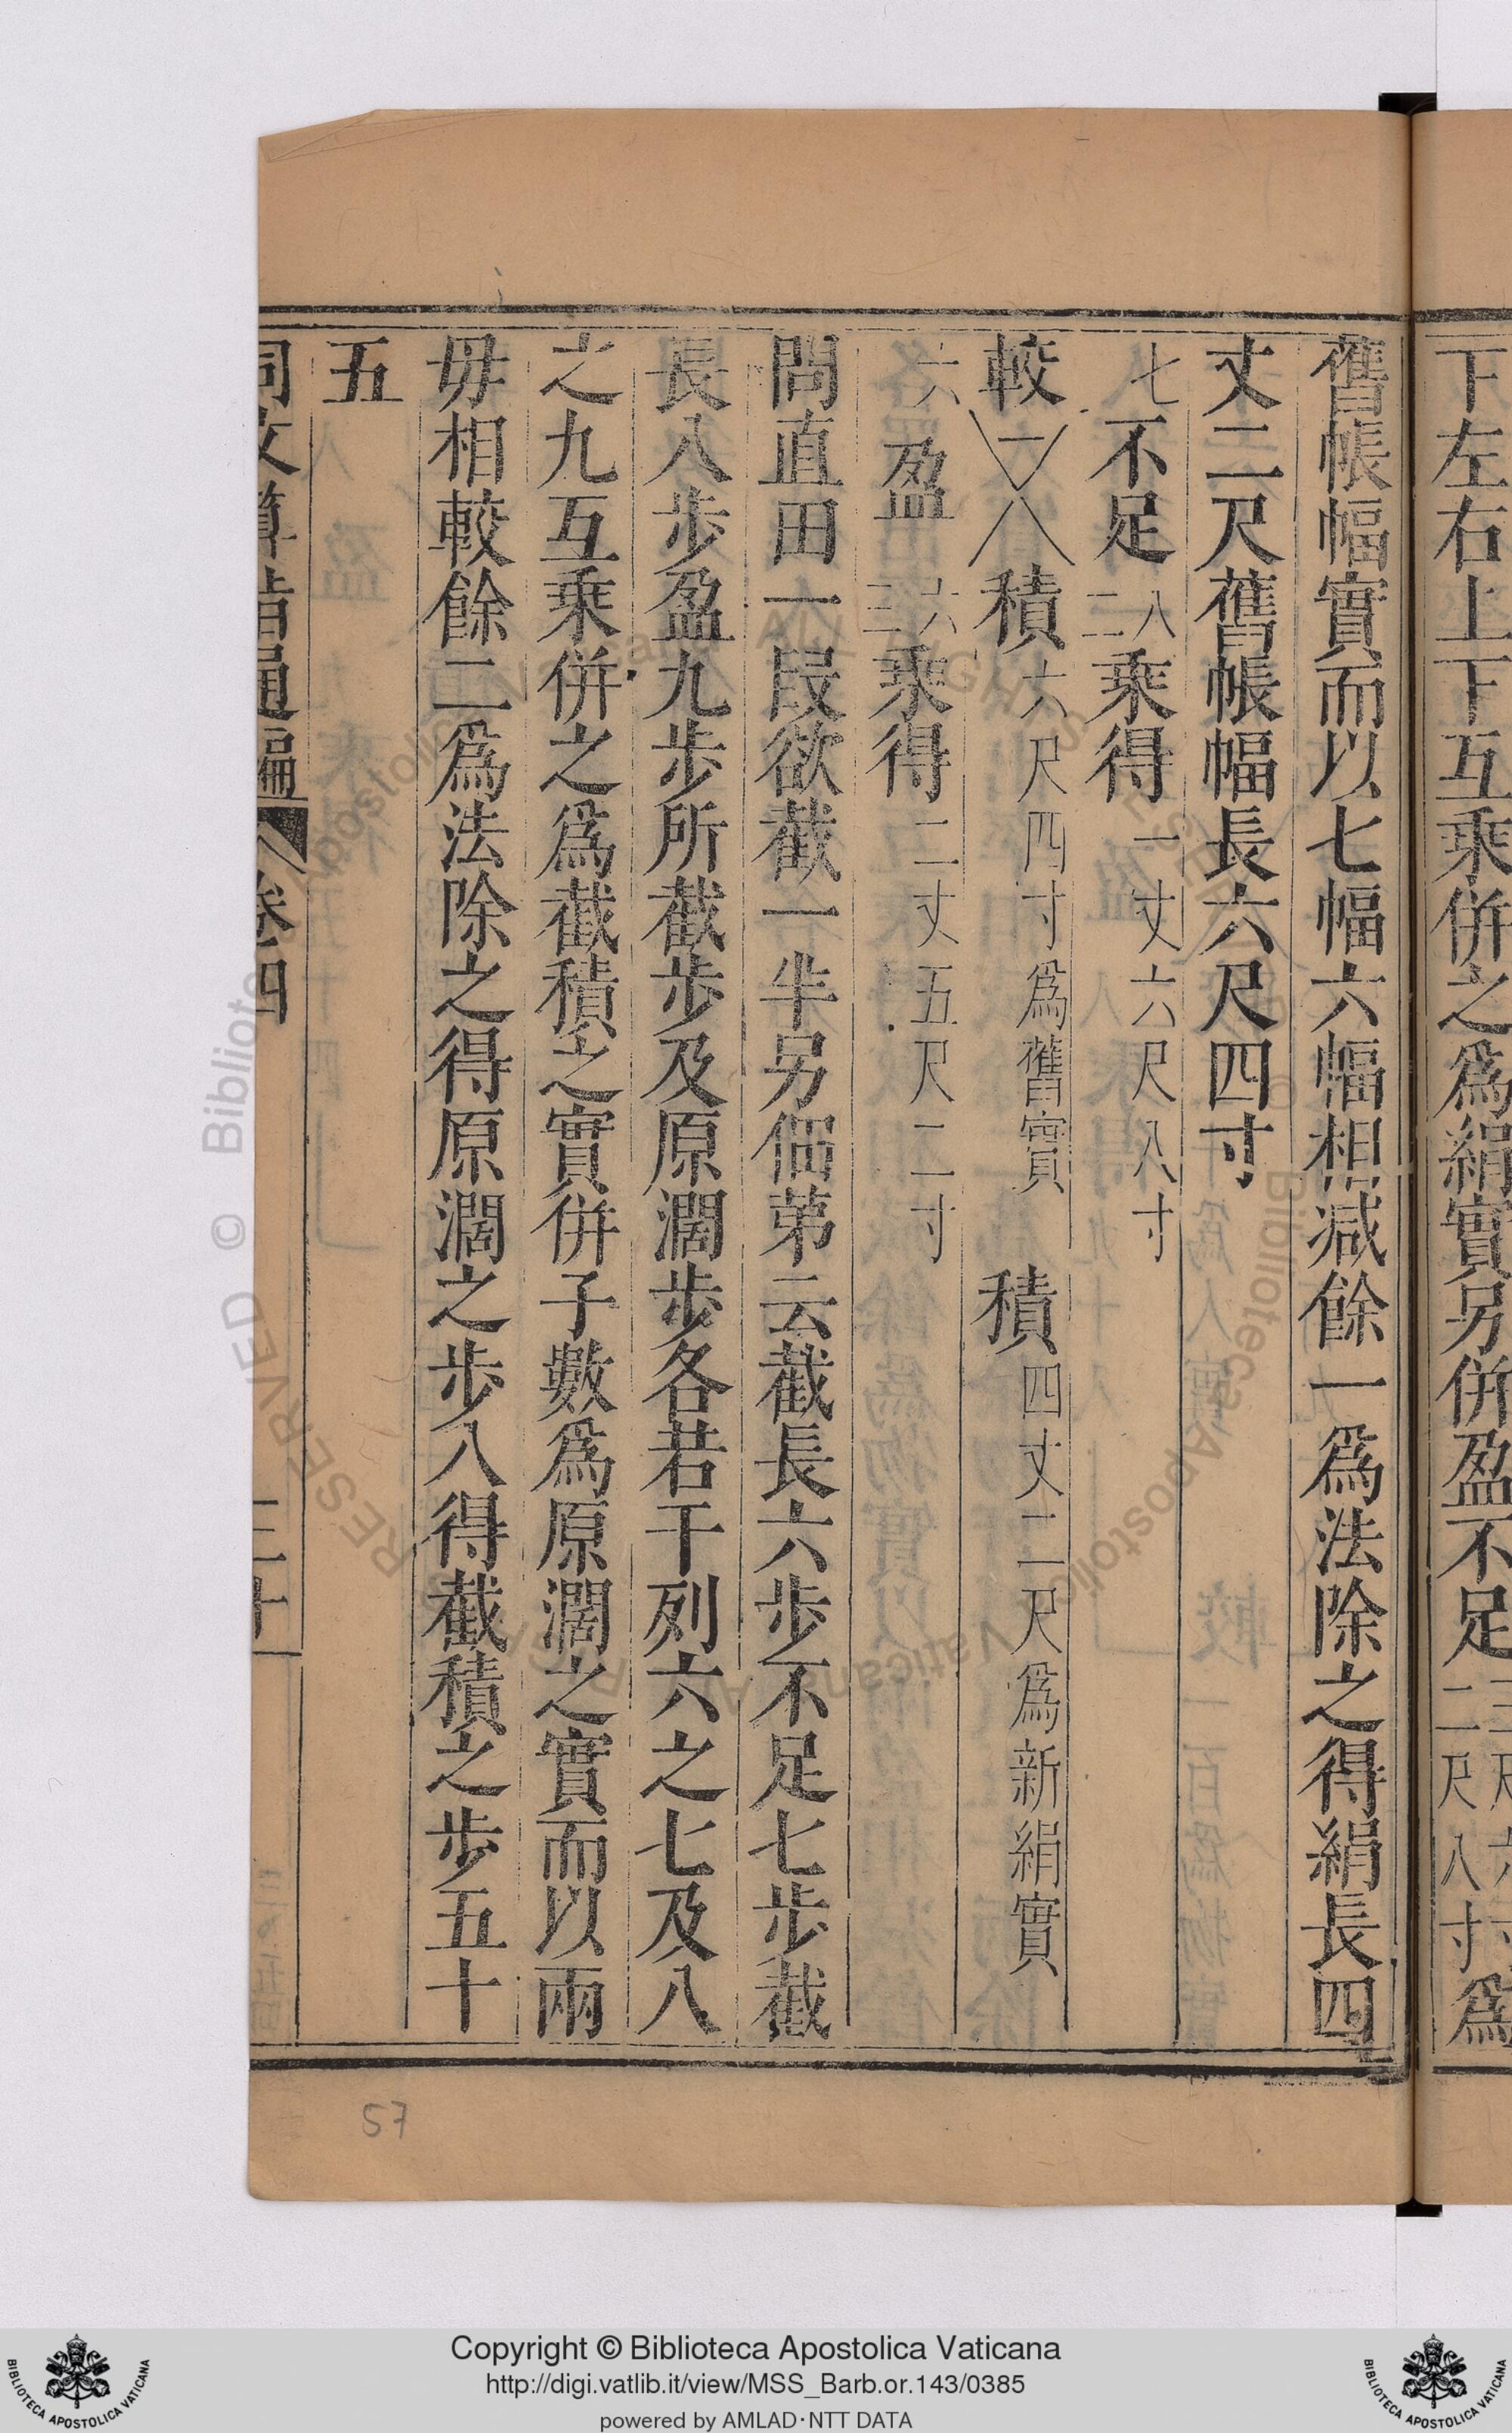 下左右上下互乘併之爲絹實另併盈不足二尺八寸爲
舊帳幅實而以七幅六幅相減餘一爲法除之得絹長四
丈二尺舊帳幅長六尺四寸
七 不足 二八 乘得 一丈六尺八寸
較 一 八 積 六尺四寸爲舊實 積 四丈二尺爲新絹實
六 盈 三六 乘得 二丈五尺二寸
問直田一段欲截一半另佃第云截長六步不足七步截
長八步盈九步所截步及原濶步各若干列六之七及八
之九互乘併之爲截積之實併子數爲原濶之實而以兩
毋相較餘二爲法除之得原濶之步八得截積之步五十
五
同文算指通編 卷四
二十
57
Copyright © Biblioteca Apostolica Vaticana
http://digi.vatlib.it/view/MSS_Barb.or.143/0385
powered by AMLAD·NTT DATA
BIBLIOTECA APOSTOLICA VATICANA
BIBLIOTECA APOSTOLICA VATICANA